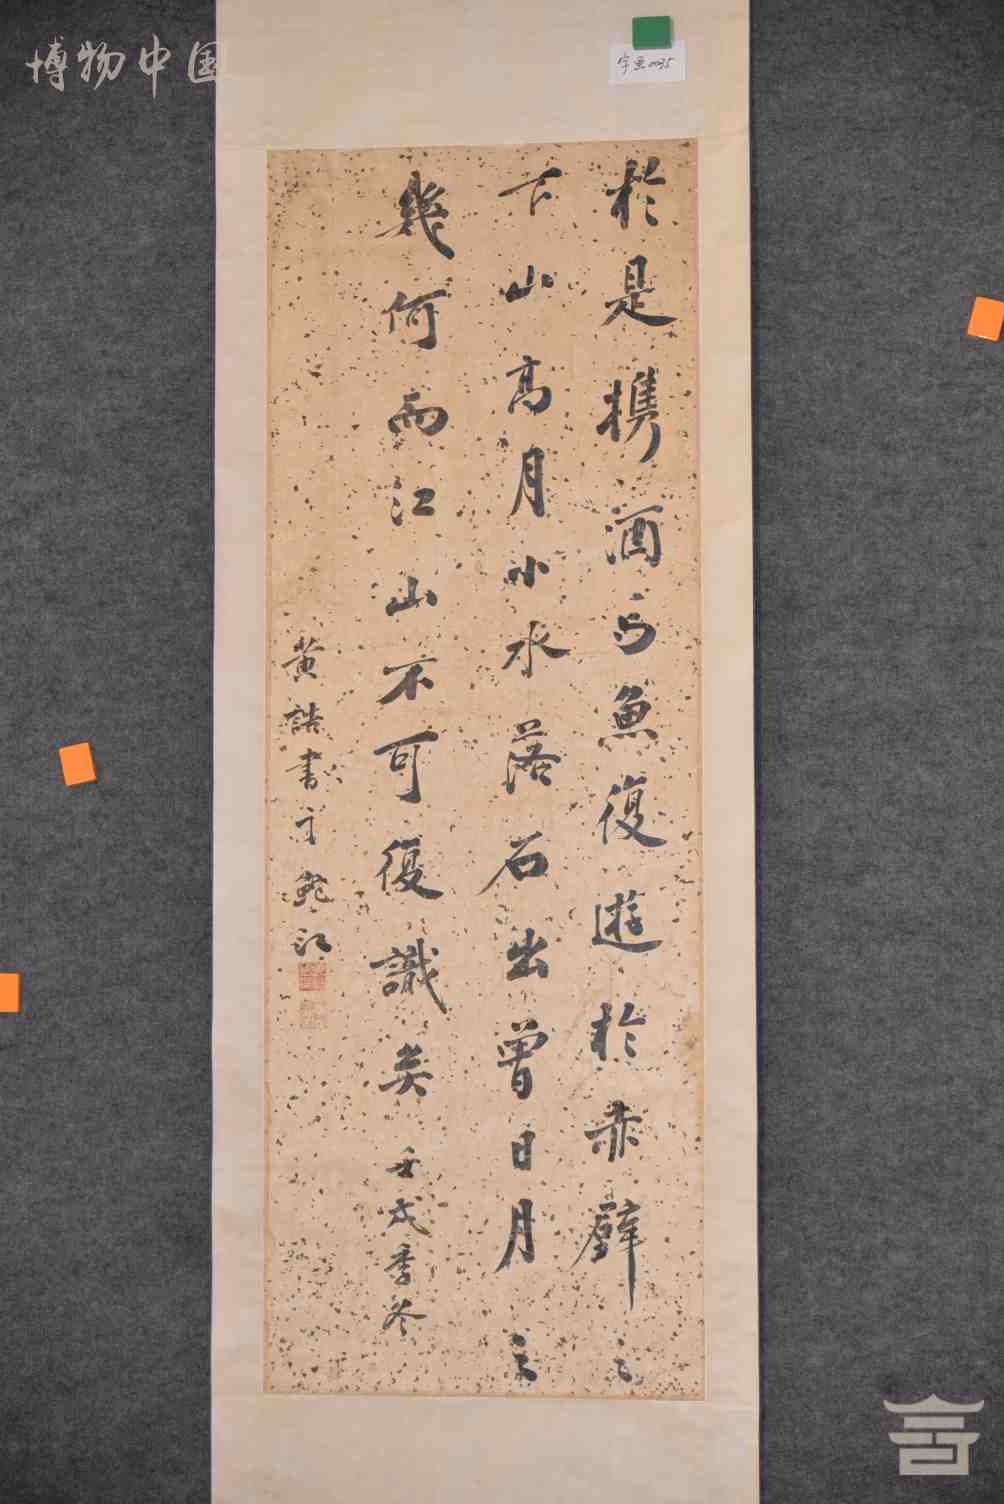 博物中国
字画0035
於是携酒与魚復遊於赤壁之
下山高月小水落石出曾日月之
幾何而江山不可復識矣壬戌季冬
黄誥書于鲍江